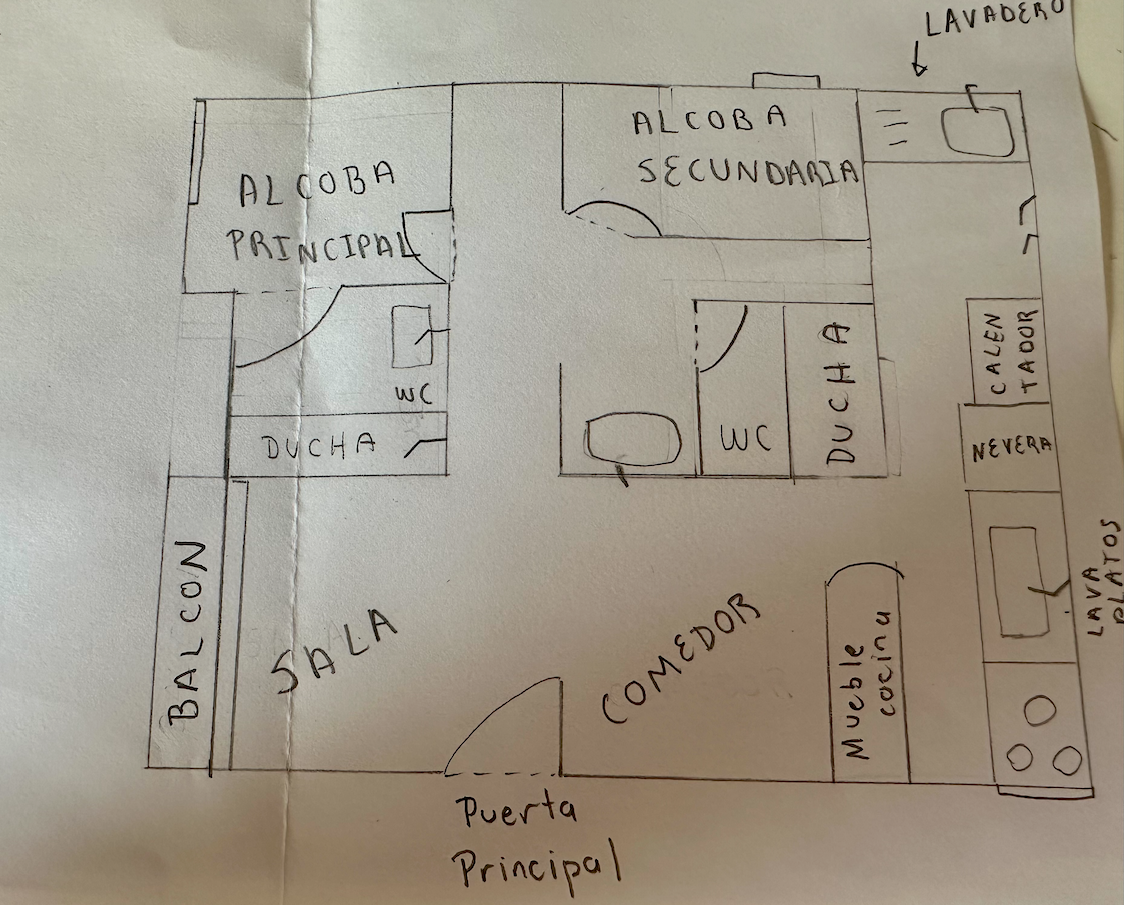 LAVADERO
ALCOBA
SECUNDARIA
ALCOBA
PRINCIPAL
WC
DUCHA
WC
DUCHA
CALEN
TADOR
NEVERA
LAVA
PLATOS
BALCON
SALA
COMEDOR
Mueble
cocina
Puerta
Principal